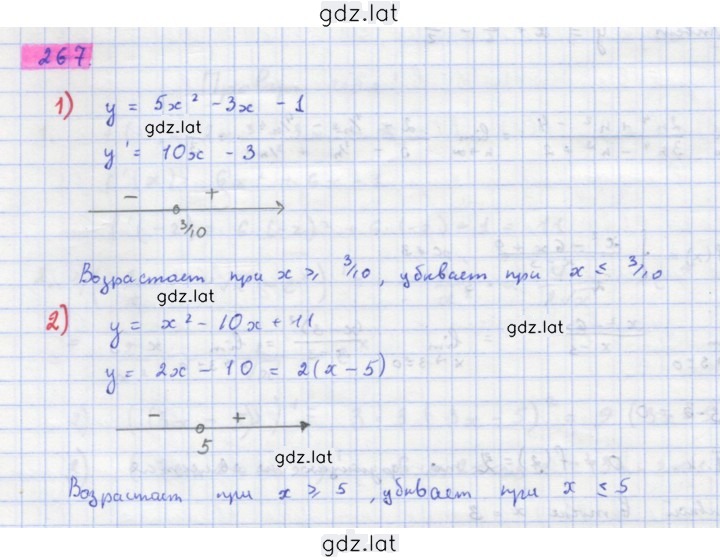 gdz.lat
267.
1) y = 5x² - 3x - 1
gdz.lat
y' = 10x - 3
- +
3/10
Возрастает при x ⩾ 3/10, убивает при x ≤ 3/10
gdz.lat
2) y = x² - 10x + 11
gdz.lat
y = 2x - 10 = 2(x - 5)
- +
5
gdz.lat
Возрастает при x ⩾ 5, убивает при x ≤ 5
gdz.lat